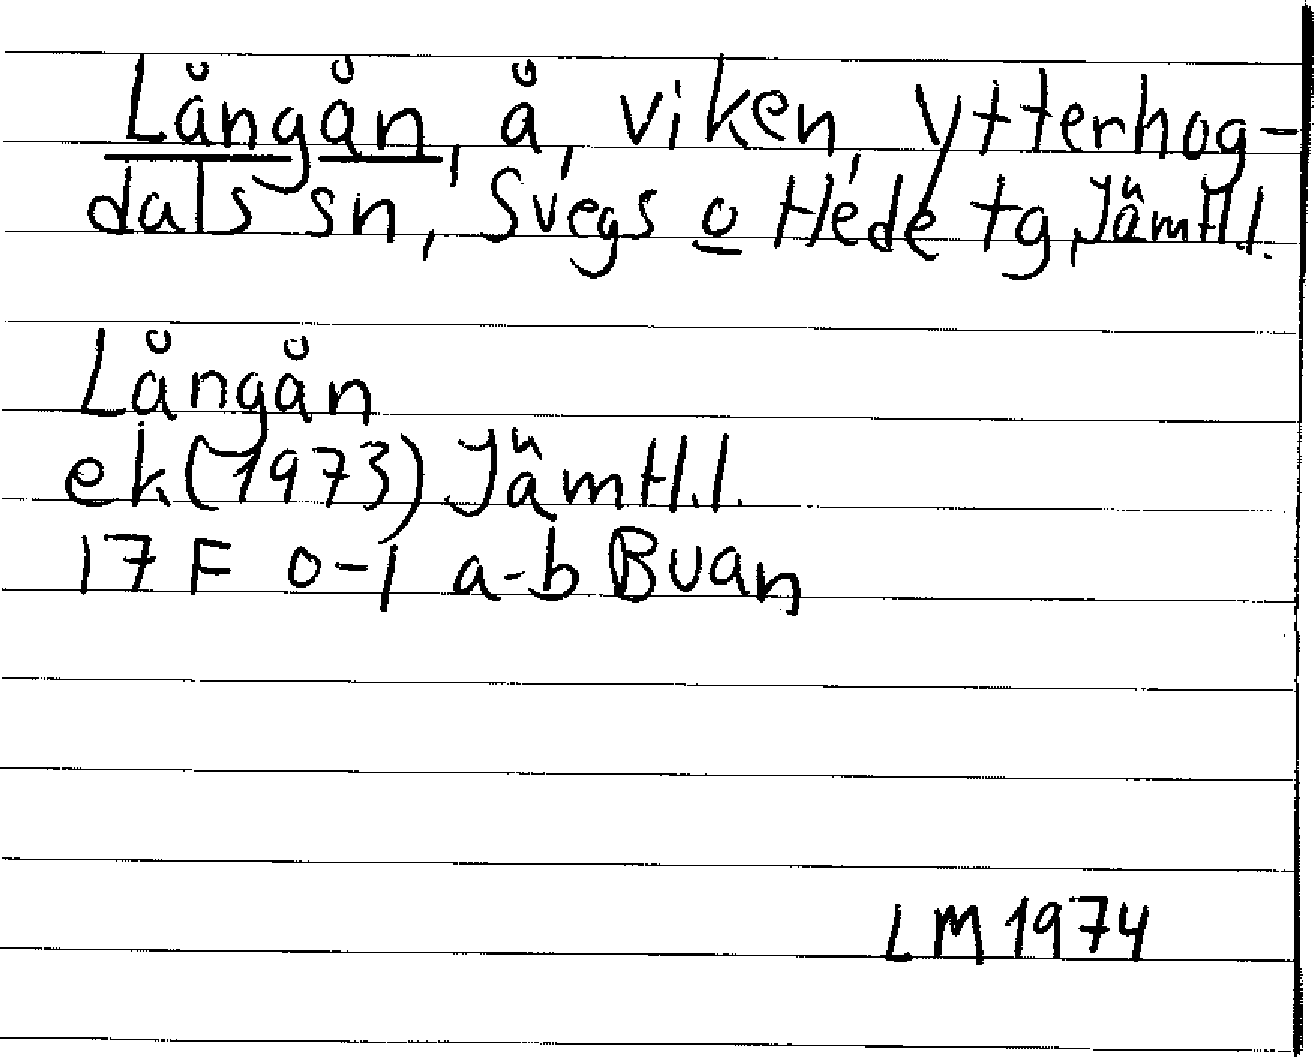 Långån, å, viken, Ytterhog-
dals sn, Svegs o Hede tg, Jämtl l.
Långån
ek (1973) Jämtl. l.
17 F 0-1 a-b Buan
LM 1974